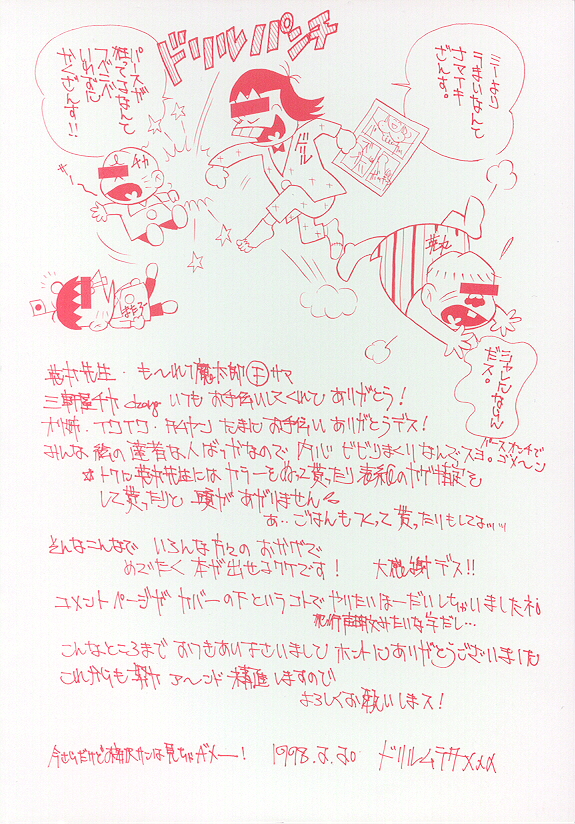 ドリルパンチ
ミーより
うまいなんて
ナマイキ
ざんす。
パース
狂ってるなんて
ざんす!!
チヤ
ドリル
シャレになんない
だス。
先生・も〜れつ魔太郎㊉サマ
三軒屋チヤchang いつもお手伝いしてくれてありがとう!
たまにお手伝いありがとうデス!
みんな 私の 達者な人ばっかなので 内心ビビリまくりなんでスヨ。ゴメ〜ン
パースオンチで
※トクに 先生には カラーをぬって貰ったり 表紙の
して貰ったりと 頭があがりません
あ‥ごはんもつくって貰ったりもしてるッッ
そんなこんなで いろんな方々の おかげで
めでたく 本が出せるワケです! 大感謝デス!!
コメントページが カバーの下というコトで やりたいほーだいしちゃいましたネ。
犯行声明文みたいな字だし…
こんなところまで おつきあい下さいまして ホントにありがとうございました
これからも アーンド 精進しますので
よろしくお願いしまス!
今さらだけど サンは 見ちゃダメー!
1998.2.20
ドリルムラタ×××